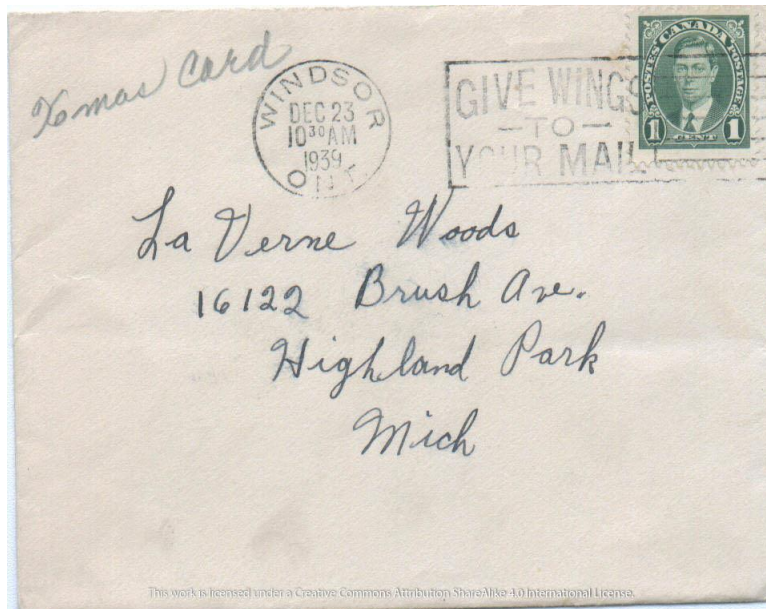 Xmas Card
WINDSOR
DEC 23
10³⁰ AM
1939
ONT
GIVE WINGS
—TO—
YOUR MAIL
POSTES CANADA POSTAGE
1 CENT 1
La Verne Woods
16122 Brush Ave.
Highland Park
Mich
This work is licensed under a Creative Commons Attribution ShareAlike 4.0 International License.